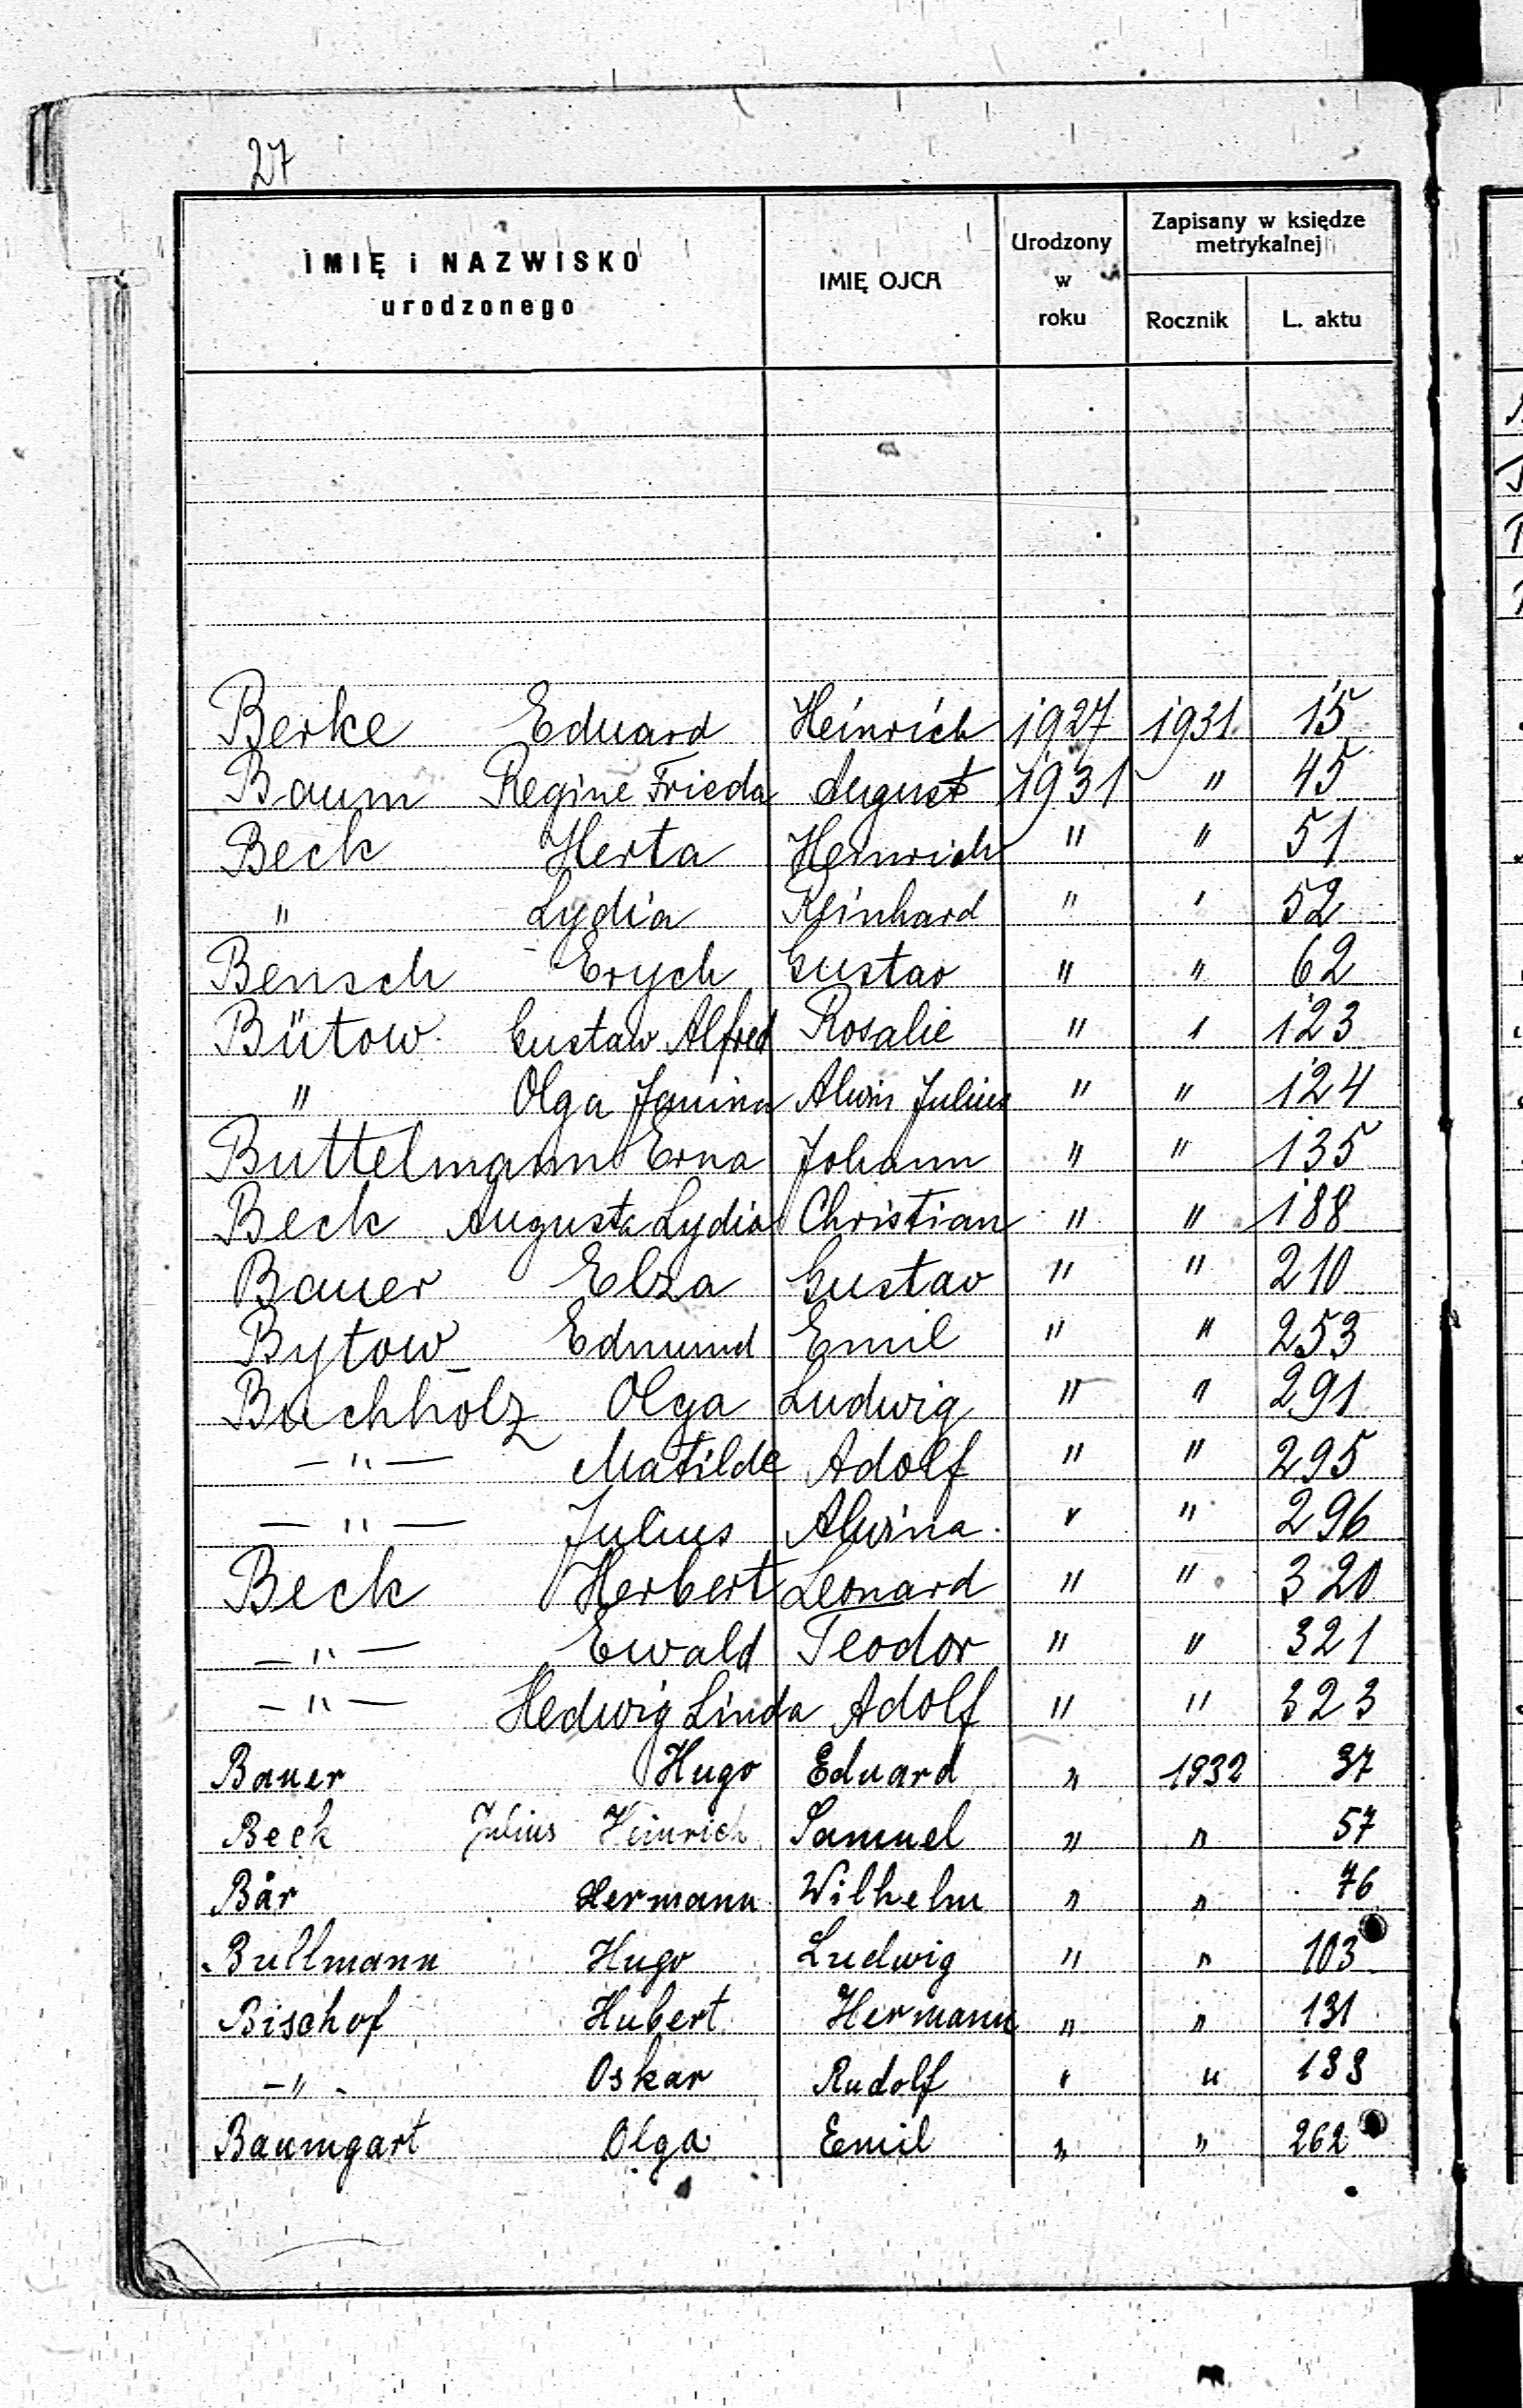 27
IMIĘ i NAZWISKO urodzonego | IMIĘ OJCA | Urodzony w roku | Zapisany w księdze metrykalnej | Rocznik | L. aktu
Berke Eduard Heinrich 1927 1931 15
Baum Regine Frieda August 1931 " 45
Beck Herta Heinrich " " 51
" Lydia Reinhard " " 52
Bensch Erych Gustav " " 62
Bütow Gustaw Alfred Rosalie " " 123
" Olga Janina Alwin Julius " " 124
Buttelmann Erna Johann " " 135
Beck Augusta Lydia Christian " " 188
Bauer Elza Gustav " " 210
Bytow Edmund Emil " " 253
Buchholz Olga Ludwig " " 291
— " — Matilde Adolf " " 295
— " — Julius Alwina " " 296
Beck Herbert Leonard " " 320
— " — Ewald Teodor " " 321
— " — Hedwig Linda Adolf " " 323
Bauer Hugo Eduard " 1932 37
Beck Julius Heinrich Samuel " " 57
Bär Hermann Wilhelm " " 76
Bullmann Hugo Ludwig " " 103
Bischof Hubert Hermann " " 131
— " - Oskar Rudolf " " 133
Baumgart Olga Emil " " 262